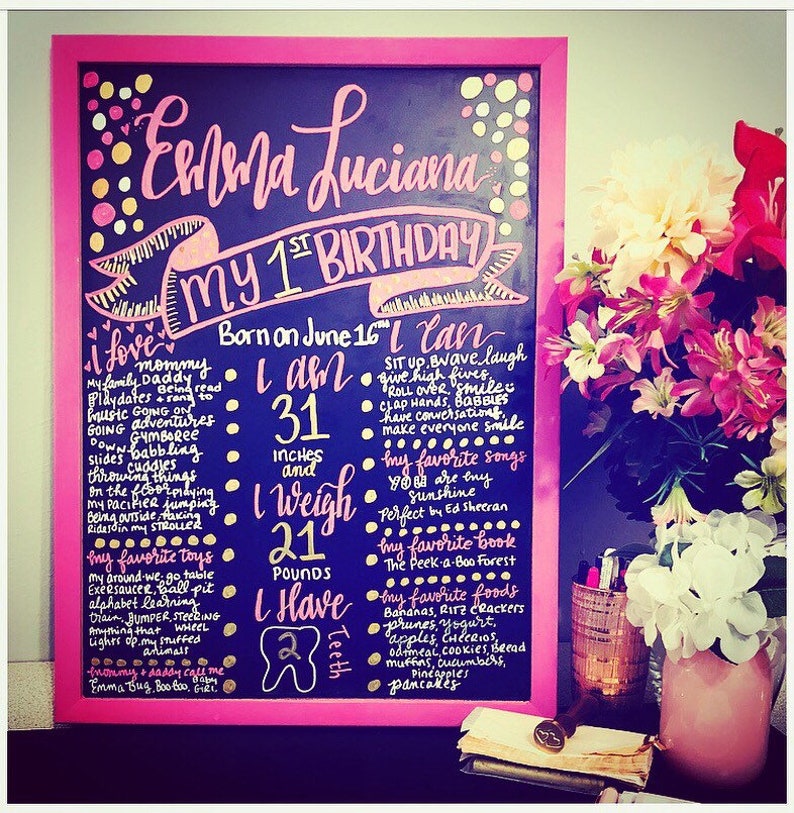 Emma Luciana
MY 1ST BIRTHDAY
Born on June 16TH
I Love
mommy
My family Daddy
Being read
playdates + sang to
music GOING ON
GOING adventures
DOWN GYMBOREE
slides babbling
cuddles
throwing things
on the floor playing
MY PACIFIER jumping
Being outside, taking
Rides in my STROLLER
my favorite toys
My around-we-go table
EXERSAUCER, ball pit
alphabet learning
train, JUMPER, STEERING
Anything that WHEEL
Lights up, my stuffed
animals
mommy + daddy call me
Emma Bug, Boo Boo, Baby
GIRL
I am
31
INCHES
and
I Weigh
21
POUNDS
I Have
2
Teeth
I Can
SIT UP, wave, laugh
give high fives,
ROLL OVER smile
CLAP HANDS, BABBLES
have conversations,
make everyone smile
my favorite songs
YOU are my
Sunshine
Perfect by Ed Sheeran
my favorite book
The Peek-a-Boo Forest
my favorite foods
Bananas, RITZ CRACKERS
prunes, Yogurt,
apples, CHEERIOS,
oatmeal, COOKIES, Bread
muffins, cucumbers,
Pineapples
pancakes